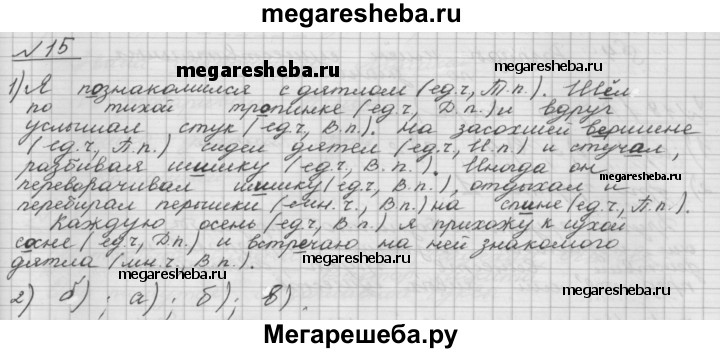 megaresheba.ru
№15
megaresheba.ru
1) Я познакомился с дятлом (ед.ч, Т.п.). Шёл
по тихой тропинке (ед.ч, Д.п.) и вдруг
услышал стук (ед.ч, В.п.). На засохшей вершине
(ед.ч, П.п.) сидел дятел (ед.ч, И.п.) и стучал,
разбивая шишку (ед.ч, В.п.). Иногда он
megaresheba.ru
переворачивал шишку (ед.ч, В.п.), отдыхал и
перебирал пёрышки (мн.ч., В.п.) на спине (ед.ч, П.п.).
Каждую осень (ед.ч, В.п.) я прихожу к сухой
сосне (ед.ч, Д.п.) и встречаю на ней знакомого
дятла (мн.ч, В.п.).
megaresheba.ru
megaresheba.ru
2) б) ; а) ; б) ; в) .
megaresheba.ru
Мегарешеба.ру